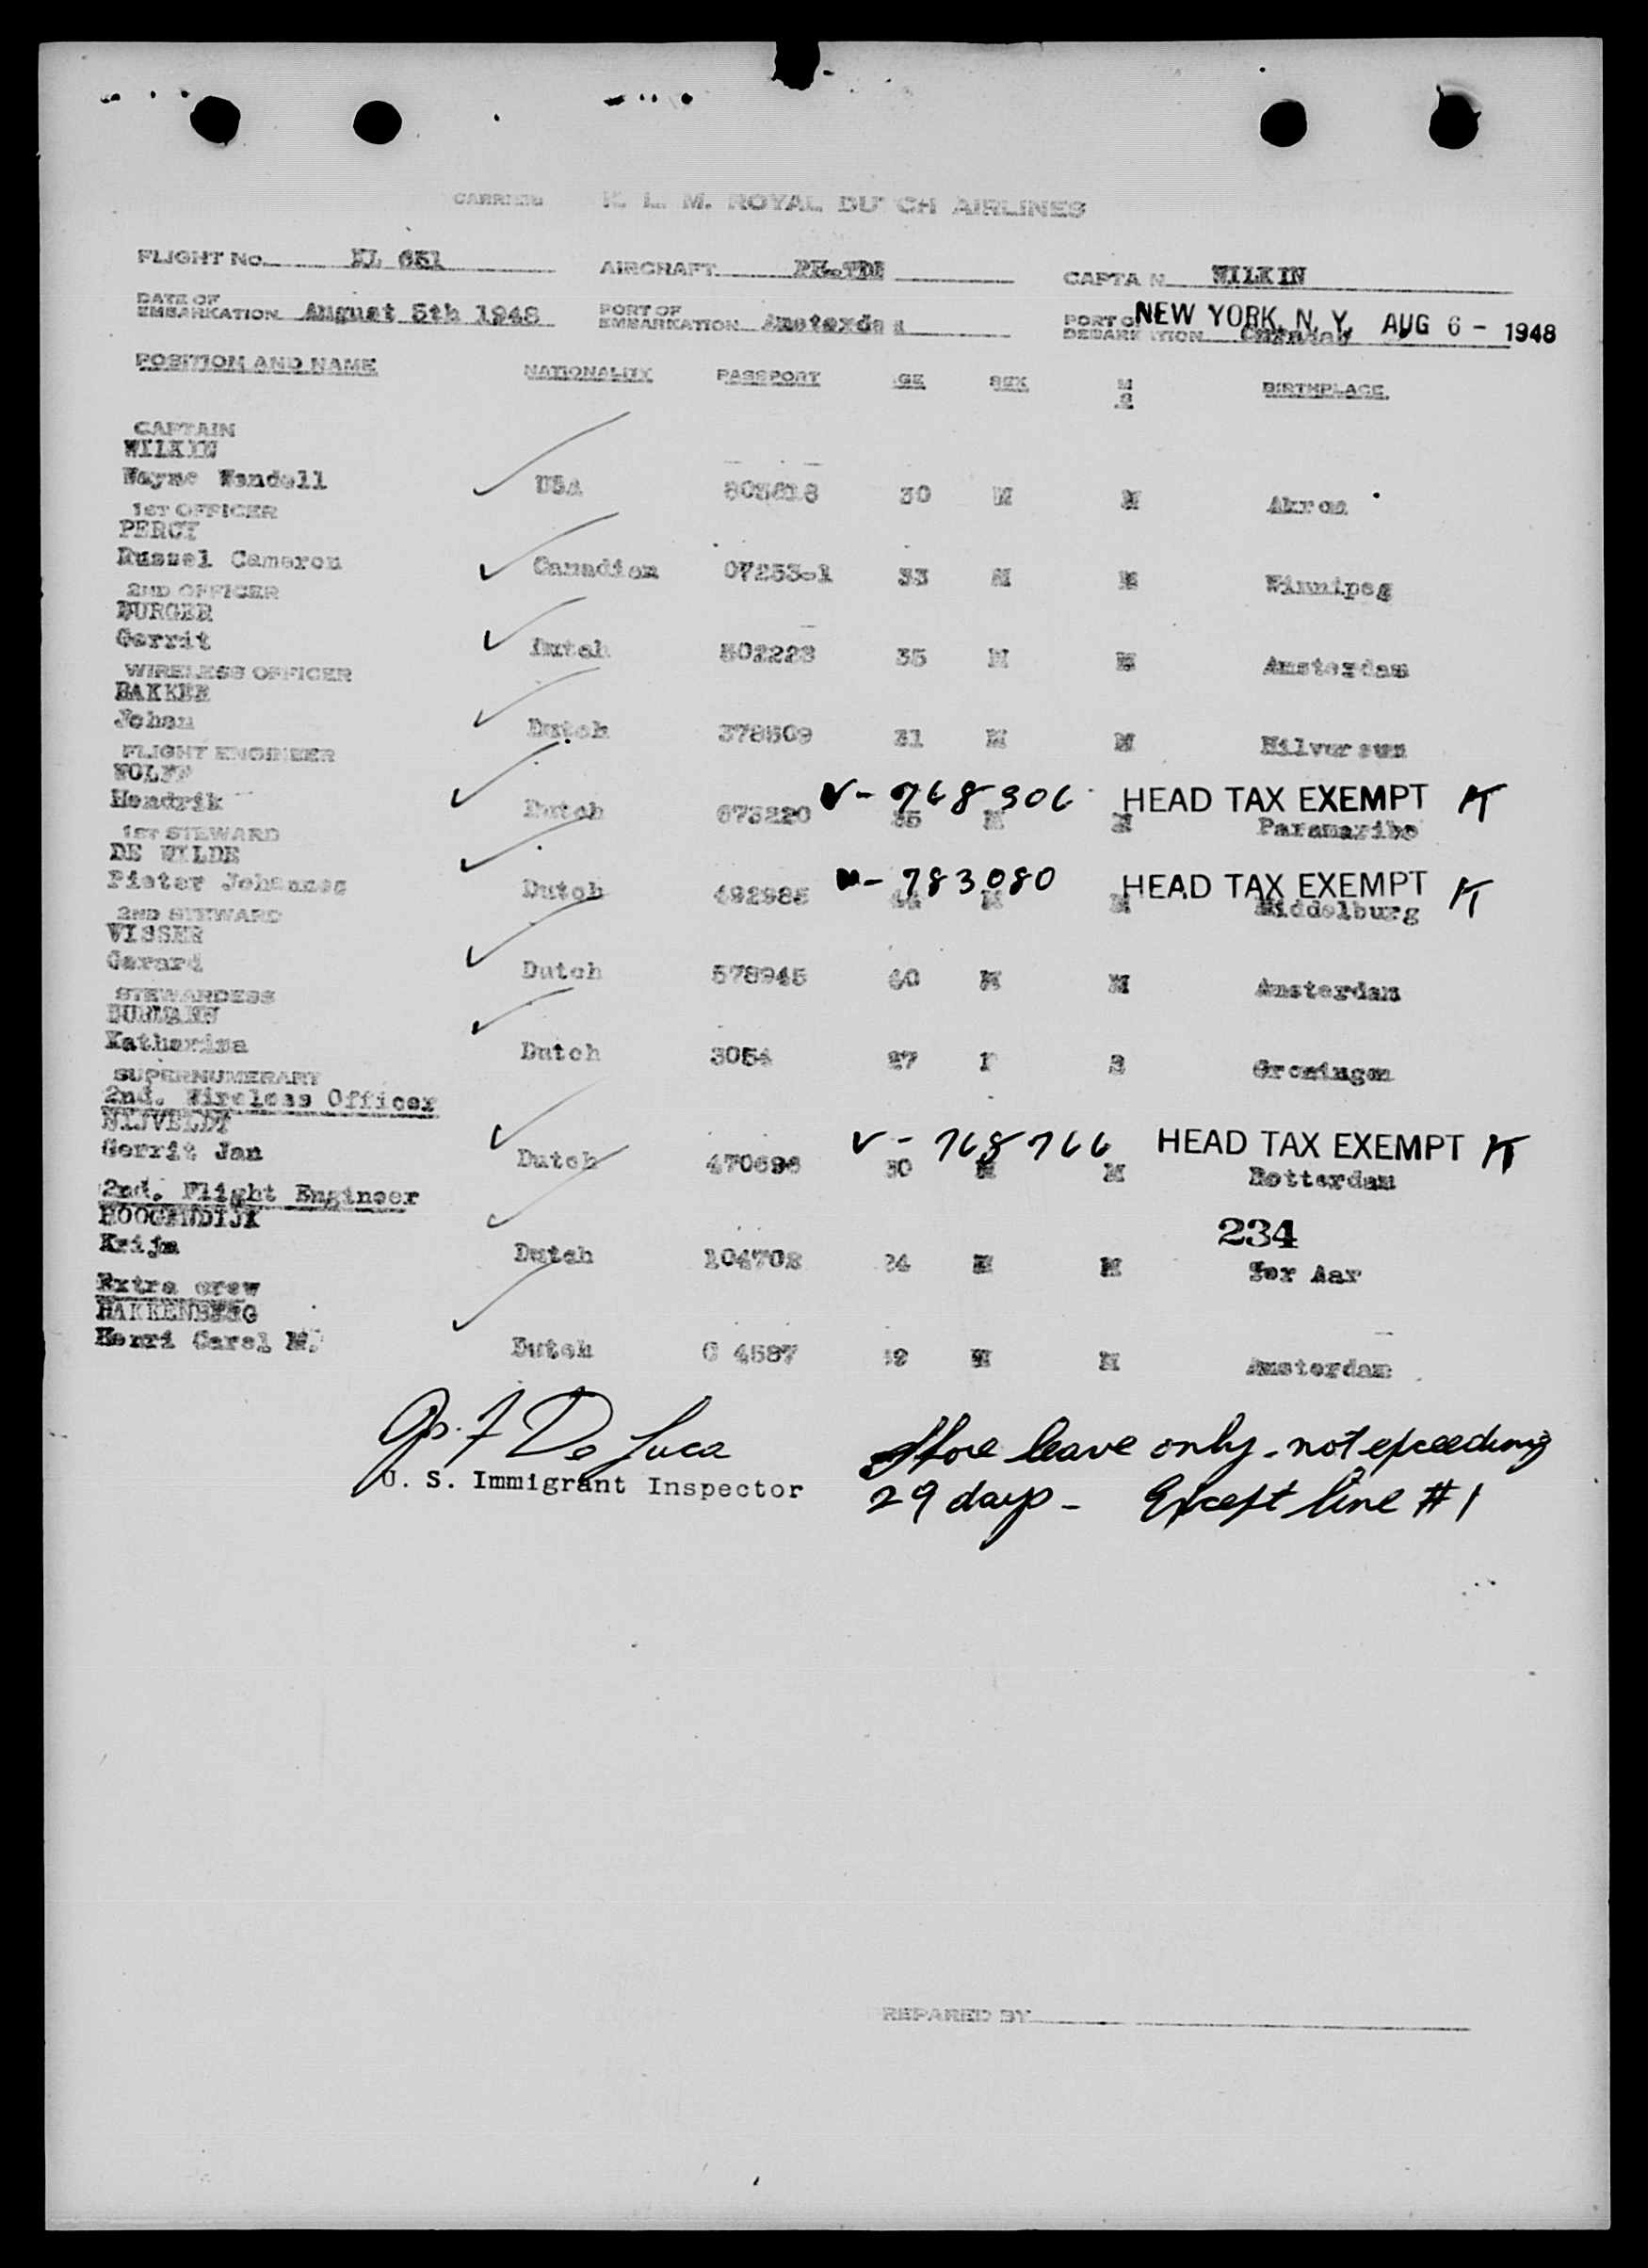 CARRIER K. L. M. ROYAL DUTCH AIRLINES
FLIGHT No. KL 651 AIRCRAFT CAPTAIN WILKIN
DATE OF EMBARKATION August 5th 1948 PORT OF EMBARKATION Amsterdam PORT OF DEBARKATION Curacao NEW YORK, N. Y. AUG 6 - 1948
POSITION AND NAME NATIONALITY PASSPORT AGE SEX M S BIRTHPLACE
CAPTAIN
WILKIN
Wayne Wendell USA 30 M M Akron
1ST OFFICER
PERCY
Russel Cameron Canadian 07253-1 33 M M Winnipeg
2ND OFFICER
BURGER
Gerrit Dutch 502223 35 M M Amsterdam
WIRELESS OFFICER
BAKKER
Johan Dutch 378509 31 M M Hilversum
FLIGHT ENGINEER
WOLFF V- 768306 HEAD TAX EXEMPT K
Hendrik Dutch 673220 35 M M Paramaribo
1ST STEWARD
DE WILDE
Pieter Johannes Dutch 492985 M M Middelburg
783080 HEAD TAX EXEMPT K
2ND STEWARD
VISSER
Gerard Dutch 578945 40 M M Amsterdam
STEWARDESS
Katharina Dutch 3054 27 F S Groningen
SUPERNUMERARY
2nd. Wireless Officer
NIJVELDT V - 768766 HEAD TAX EXEMPT K
Gerrit Jan Dutch 470696 30 M M Rotterdam
2nd. Flight Engineer
HOOGENDIJK 234
Krijn Dutch 104708 24 M M Ter Aar
Extra crew
HAKKENBERG
Henri Carel M. Dutch C 4587 M M Amsterdam
De Luca
U. S. Immigrant Inspector
Shore leave only - not exceeding
29 days - Except line #1
PREPARED BY